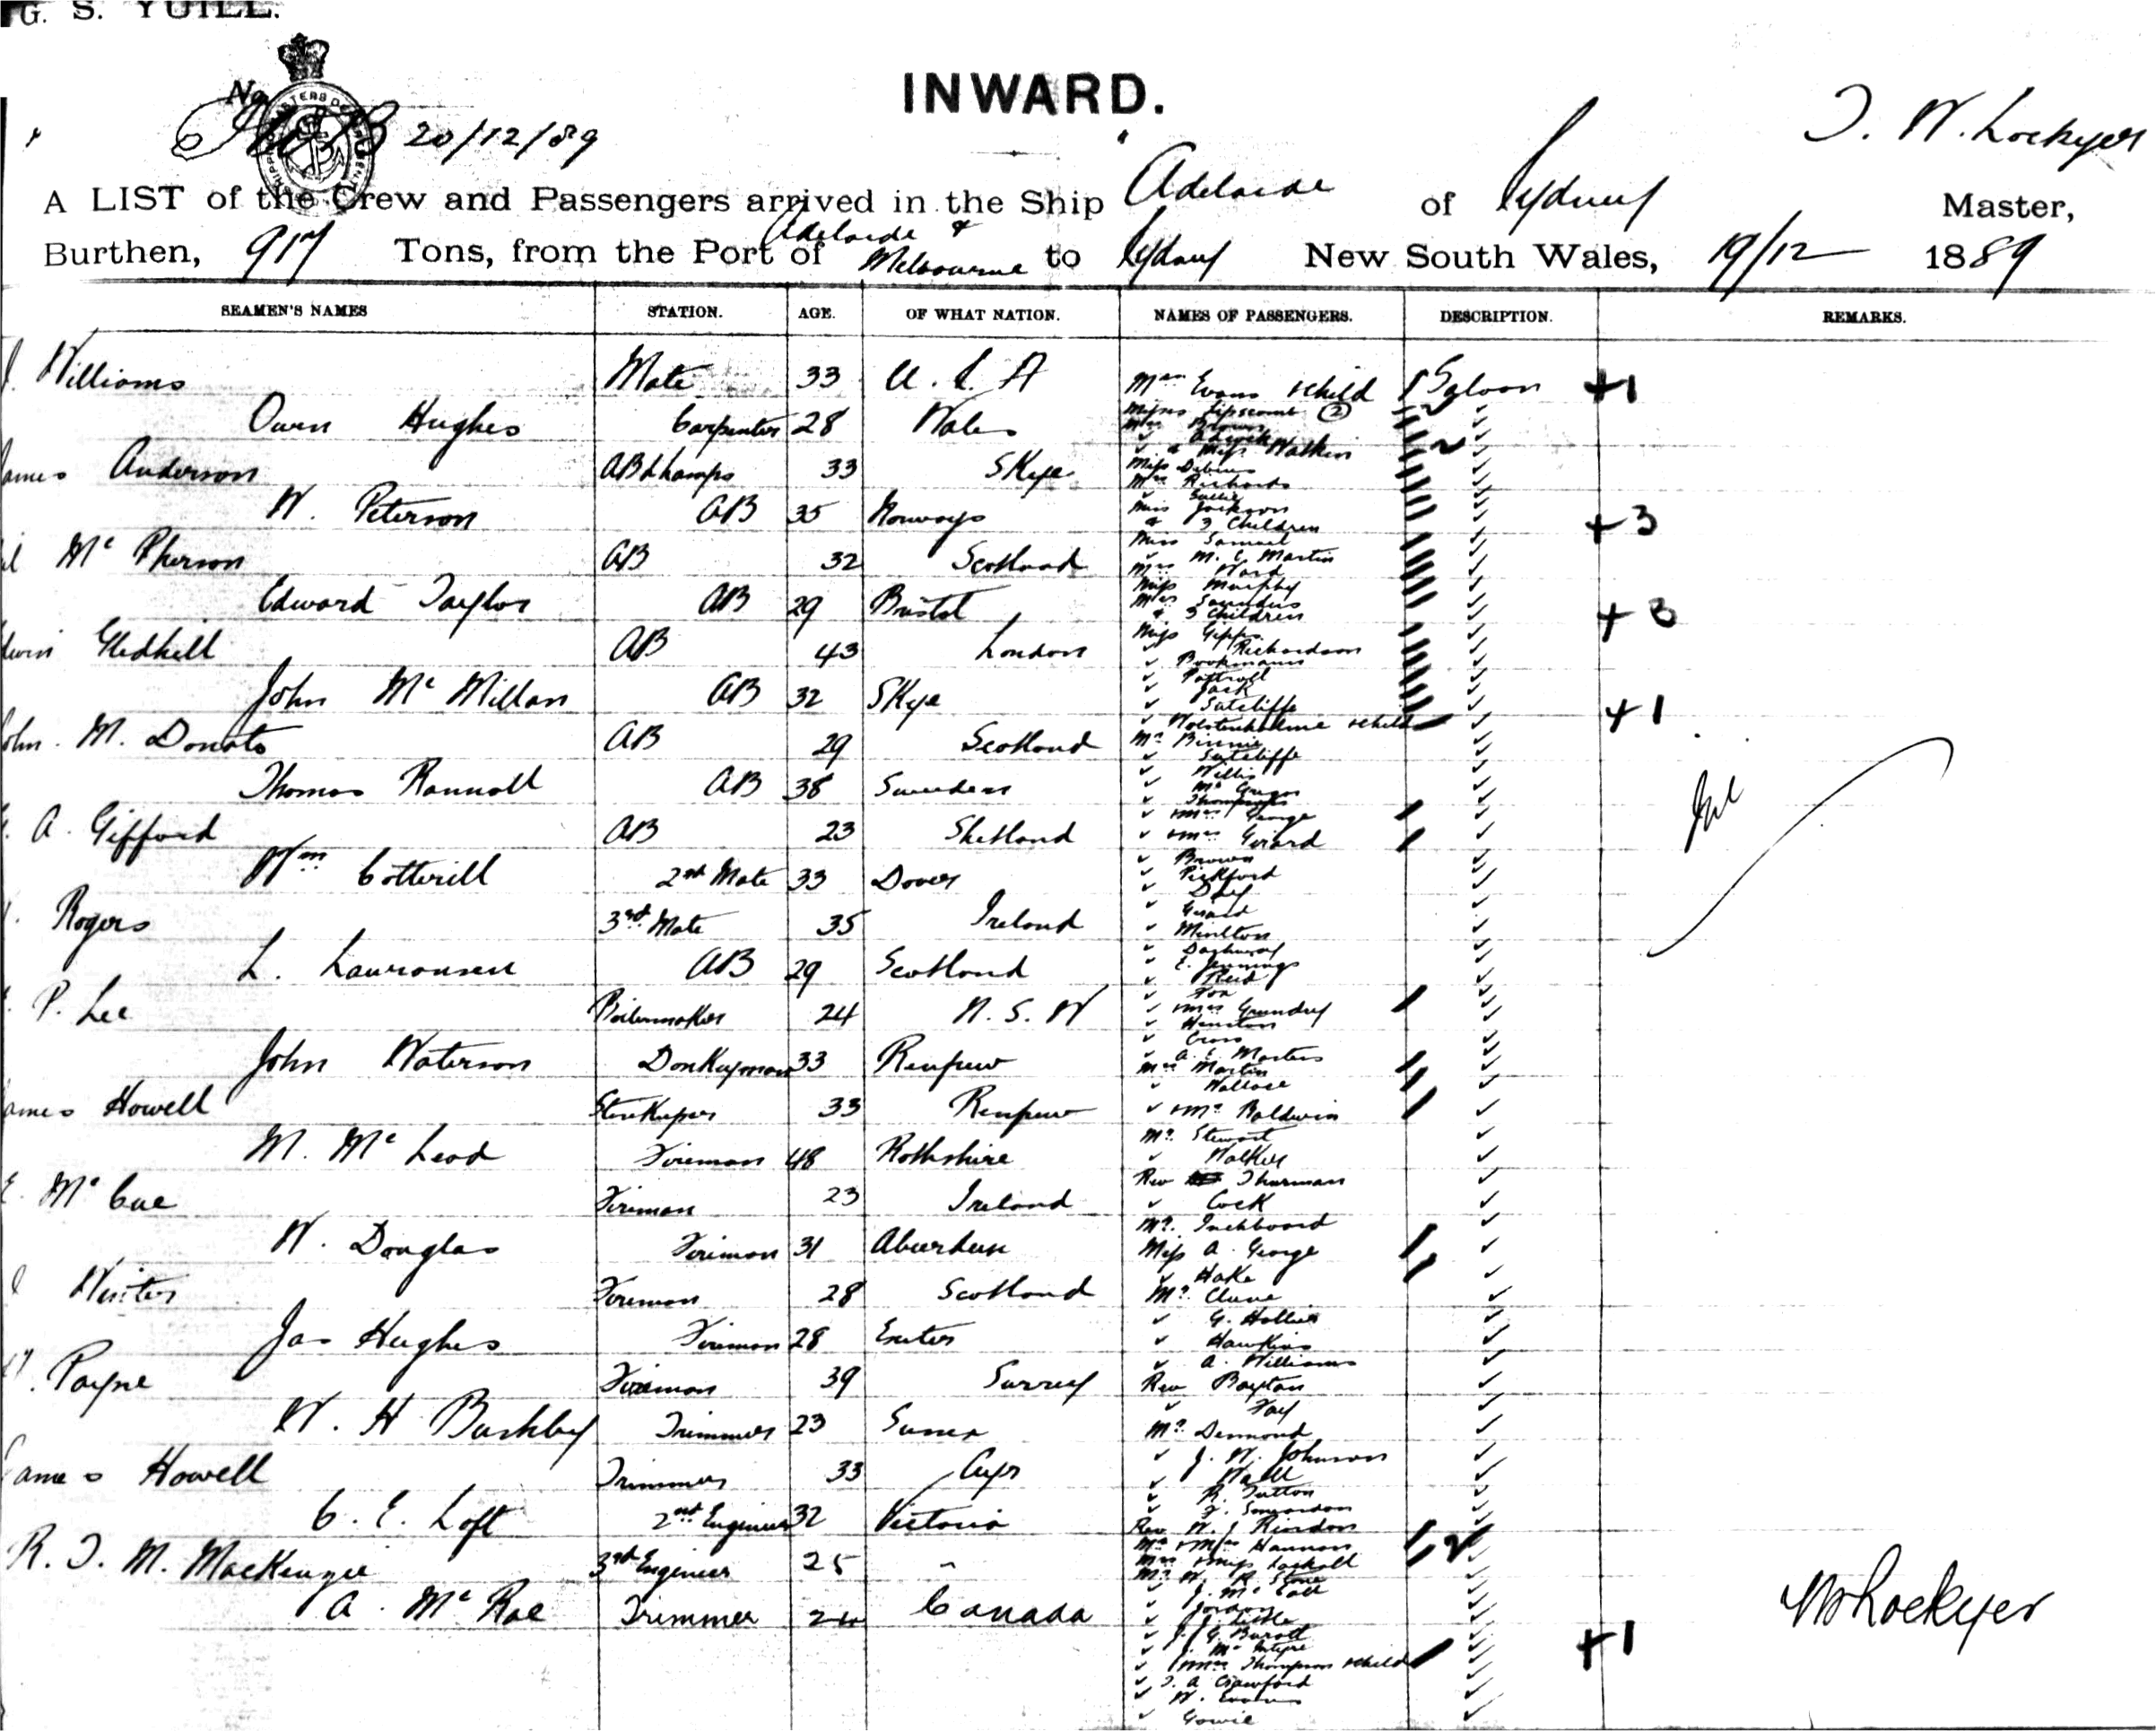 G. S. YUILL.
INWARD.
No 20/12/89
J. W. Lockyer
A LIST of the Crew and Passengers arrived in the Ship Adelaide of Sydney Master,
Burthen, 917 Tons, from the Port of Adelaide & Melbourne to Sydney New South Wales, 19/12 1889
SEAMEN'S NAMES STATION. AGE. OF WHAT NATION. NAMES OF PASSENGERS. DESCRIPTION. REMARKS.
Williams Mate 33 U. S. A Mrs Evans & child 1 Saloon +1
Owen Hughes Carpenter 28 Wales Misses Lipscomb 2
Mrs Brown
James Anderson AB & Lamps 33 Skye & Miss Watkin
Mrs Richards
W. Peterson AB 35 Norways Miss Jackson
& 3 Children +3
Mc Pherson AB 32 Scotland Miss Samuel
M. C. Martin
Mrs Ward
Edward Taylor AB 29 Bristol Miss Murphy
Mrs Saunders
& 3 Children +3
Gledhill AB 43 London Miss Gipps
Richardson
Bookmann
John Mc Millan AB 32 Skye Jack
Sutcliffe
Wolstenholme & child +1
John. M. Donato AB 29 Scotland Mr Binnie
Sutcliffe
Thomas Rannoll AB 38 Sweeden Willis
Mc Gregor
Thompson
A. Gifford AB 23 Shetland & Mrs George
& Mrs Girard
Wm Cotterill 2nd Mate 33 Dover Brown
Pickford
Day
Rogers 3rd Mate 35 Ireland Girard
Minlton
L. Lauransen AB 29 Scotland E. Jennings
Reid
Fox
P. Lee Boilermaker 24 N. S. W & Mrs Grundy
Hunston
Cross
John Waterson Donkeyman 33 Renfrew A. E. Masters
Mrs Martin
Wallace
James Howell Storekeeper 33 Renfrew & Mrs Baldwin
M. Mc Leod Fireman 48 Rothshire Mr. Stewart
Walker
Rev Thurman
Mc Cue Fireman 23 Ireland Cock
W. Douglas Fireman 31 Aberdeen Mr. Inchboard
Miss A. George
Hake
Winter Fireman 28 Scotland Mr. Clune
G. Hollier
Jas Hughes Fireman 28 Exeter Hawkins
A. Williams
Payne Fireman 39 Surrey Rev Boyton
Fay
W. H Bushby Trimmer 23 Mr. Desmond
J. W. Johnson
James Howell Trimmer 33 Ayr Wall
R. Sutton
C. E. Loft 2nd Engineer 32 Victoria
Rev W. J. Riordon
Hannon
R. J. M. MacKenzie 3rd Engineer 25 " & Miss
Mr W. R Stone
A. Mc Rae Trimmer 24 Canada J. Mc Call
Jordon
Little
J. G. Barott
J. Mc Intyre
& Mrs Thompson & child +1
J. A Crawford
W. Evans
Gowie
Nil
Lockyer